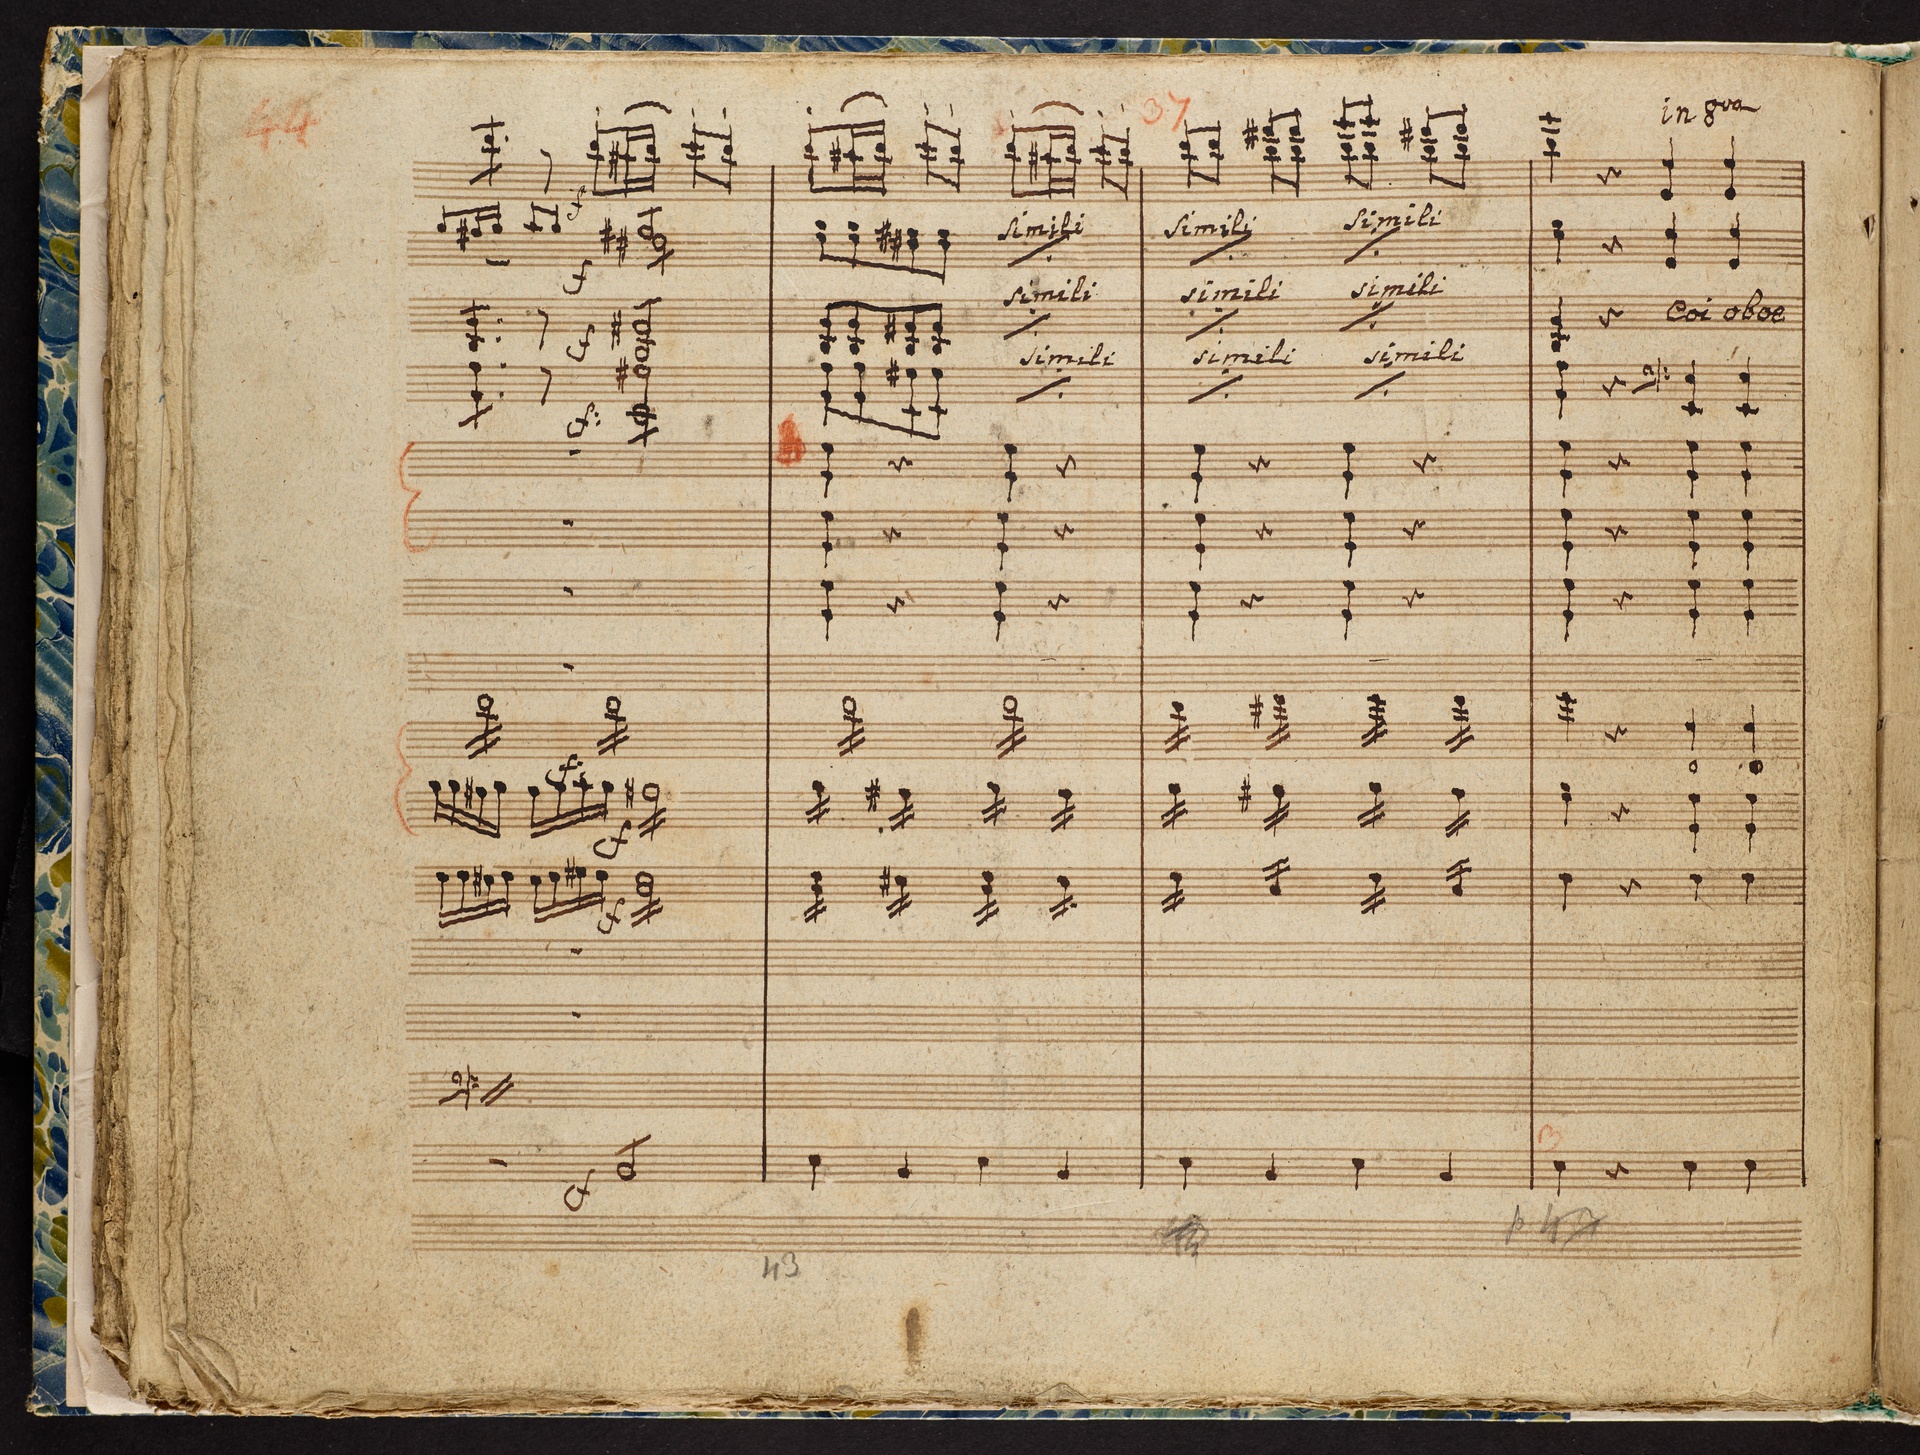 44
37
in 8va
simili
simili
simili
simili
simili
simili
Coi oboe
simili
simili
simili
43